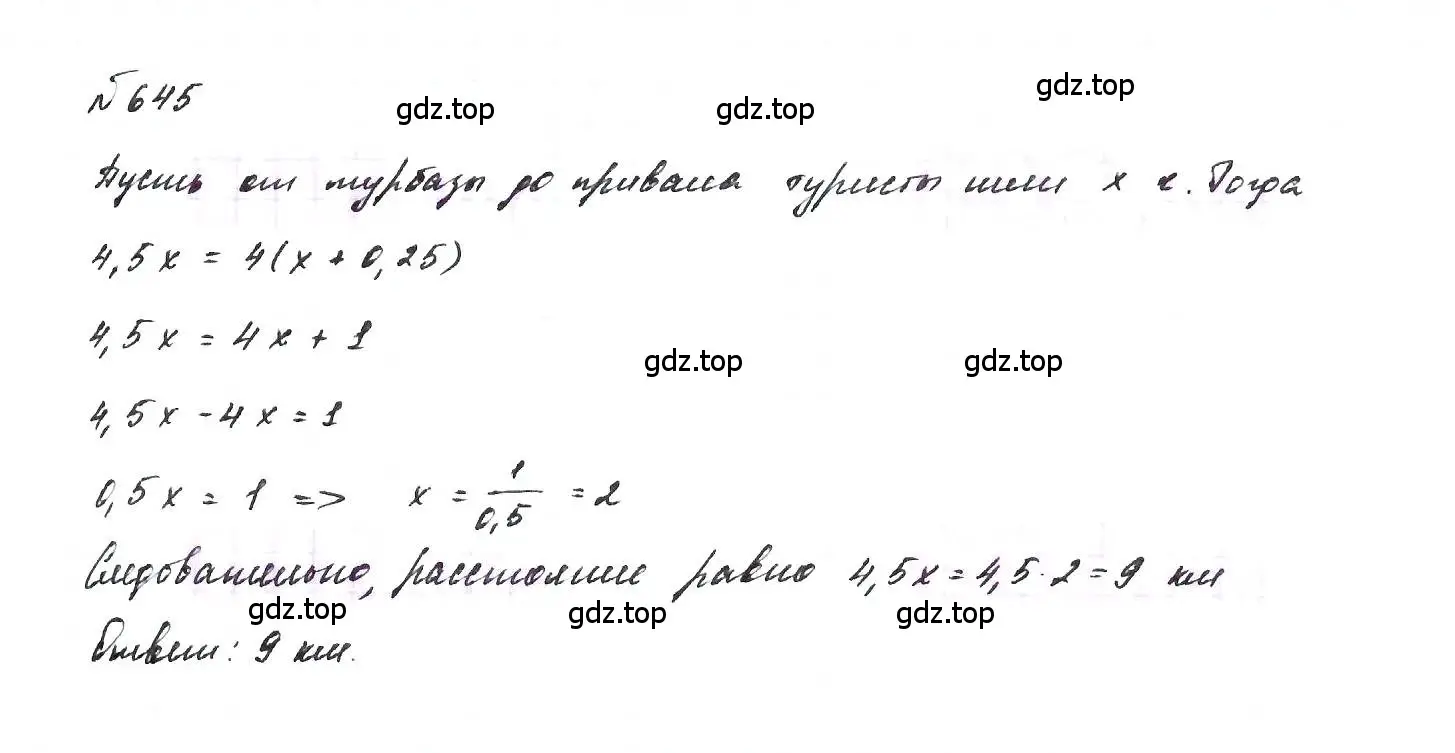 № 645
gdz.top gdz.top gdz.top
Пусть от турбазы до привала туристы шли x ч. Тогда
4,5x = 4(x + 0,25)
4,5x = 4x + 1
gdz.top gdz.top
4,5x - 4x = 1
0,5x = 1 => x = 1/0,5 = 2
Следовательно, расстояние равно 4,5x = 4,5·2 = 9 км
gdz.top gdz.top gdz.top
Ответ: 9 км.